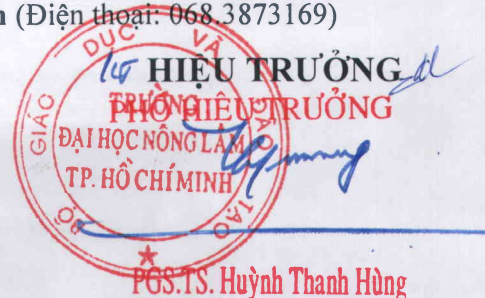 n (Điện thoại: 068.3873169)
KT HIỆU TRƯỞNG
PHÓ HIỆU TRƯỞNG
BỘ GIÁO DỤC VÀ ĐÀO TẠO
TRƯỜNG
ĐẠI HỌC NÔNG LÂM
TP. HỒ CHÍ MINH
PGS.TS. Huỳnh Thanh Hùng